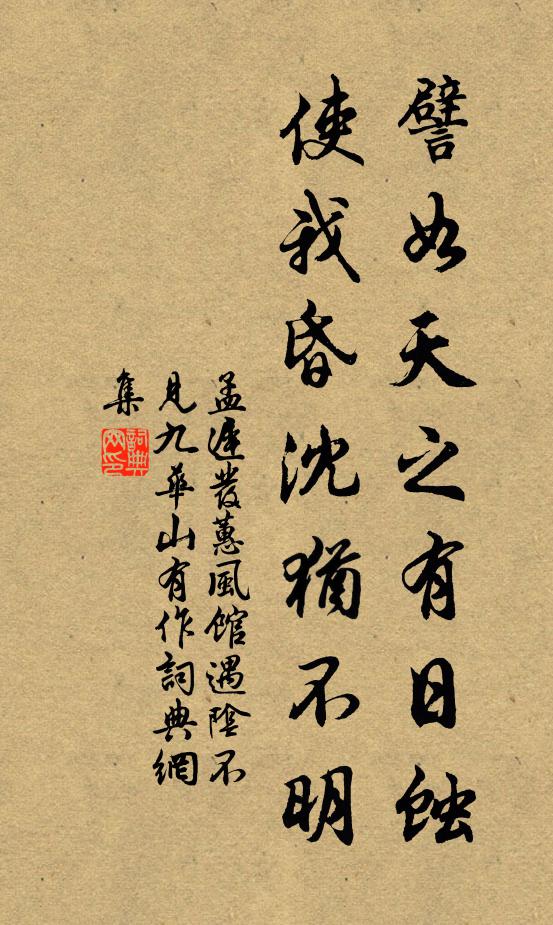 譬如天之有日蝕
使我昏沈猶不明
孟遲發蕙風館遇陰不
見九華山有作詞典網
集
詞典網印